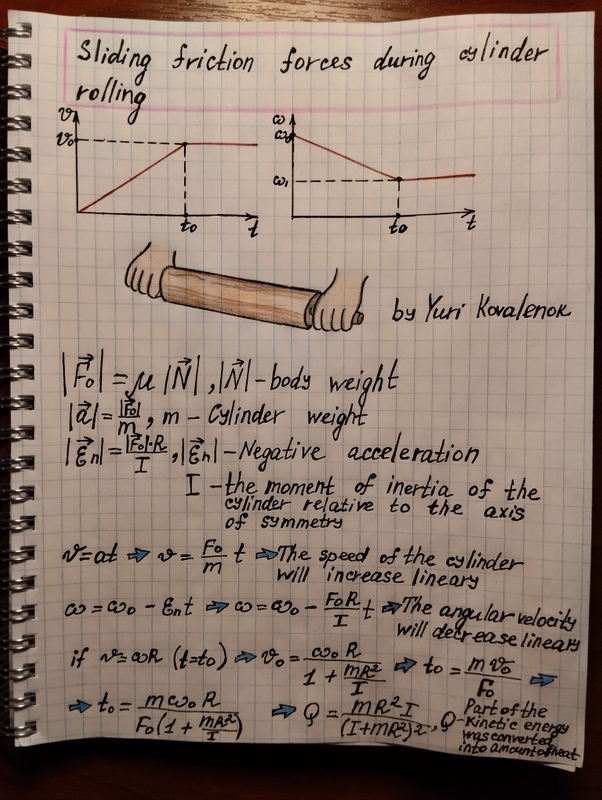 Sliding friction forces during cylinder
rolling
v
v₀
t₀
t
ω
ω₀
ω₁
t₀
t
by Yuri Kovalenok
|F⃗₀| = μ |N⃗|, |N⃗| - body weight
|a⃗| = |F⃗₀|/m, m - Cylinder weight
|ε⃗ₙ| = |F⃗₀|·R/I, |ε⃗ₙ| - Negative acceleration
I - the moment of inertia of the
cylinder relative to the axis
of symmetry
v=at ⇒ v = F₀/m t ⇒ The speed of the cylinder
will increase lineary
ω = ω₀ - εₙt ⇒ ω = ω₀ - F₀R/I t ⇒ The angular velocity
will decrease lineary
if v=ωR (t=t₀) ⇒ v₀ = ω₀R/(1 + mR²/I) ⇒ t₀ = mv₀/F₀ ⇒
⇒ t₀ = mω₀R/(F₀(1 + mR²/I)) ⇒ Q = mR²I/(I+mR²)², Q - Part of the
kinetic energy
was converted
into amount of heat